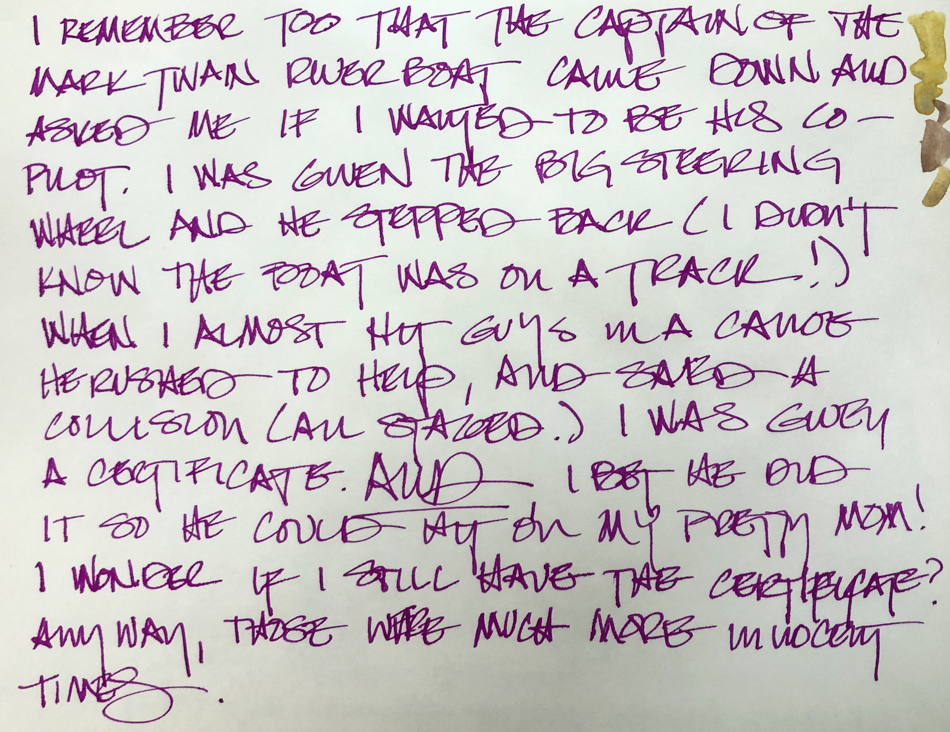 I REMEMBER TOO THAT THE CAPTAIN OF THE
MARK TWAIN RIVER BOAT CAME DOWN AND
ASKED ME IF I WANTED TO BE HIS CO-
PILOT. I WAS GIVEN THE BIG STEERING
WHEEL AND HE STEPPED BACK (I DIDN'T
KNOW THE BOAT WAS ON A TRACK!)
WHEN I ALMOST HIT GUYS IN A CANOE
HE RUSHED TO HELP, AND SAVED A
COLLISION (ALL STAGED.) I WAS GIVEN
A CERTIFICATE. AND I BET HE DID
IT SO HE COULD HIT ON MY PRETTY MOM!
I WONDER IF I STILL HAVE THE CERTIFICATE?
ANYWAY, THOSE WERE MUCH MORE INNOCENT
TIMES.